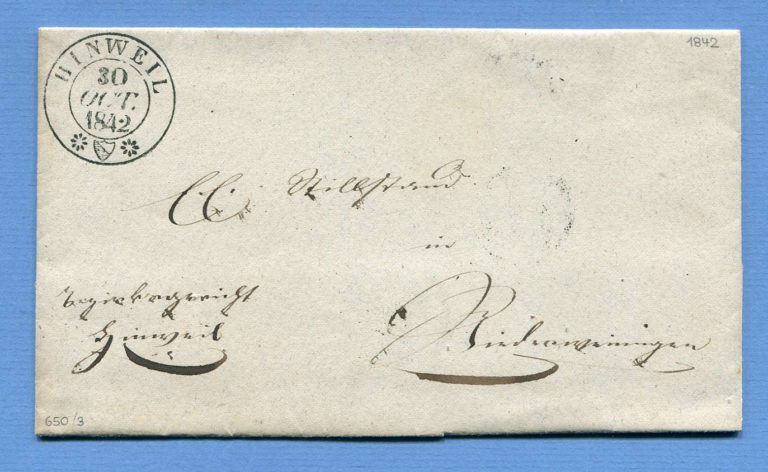 HINWEIL
30
OCT.
1842
1842
EE. Stillstand
in
Niederweiningen
Bezirksgericht
Hinweil
650/3